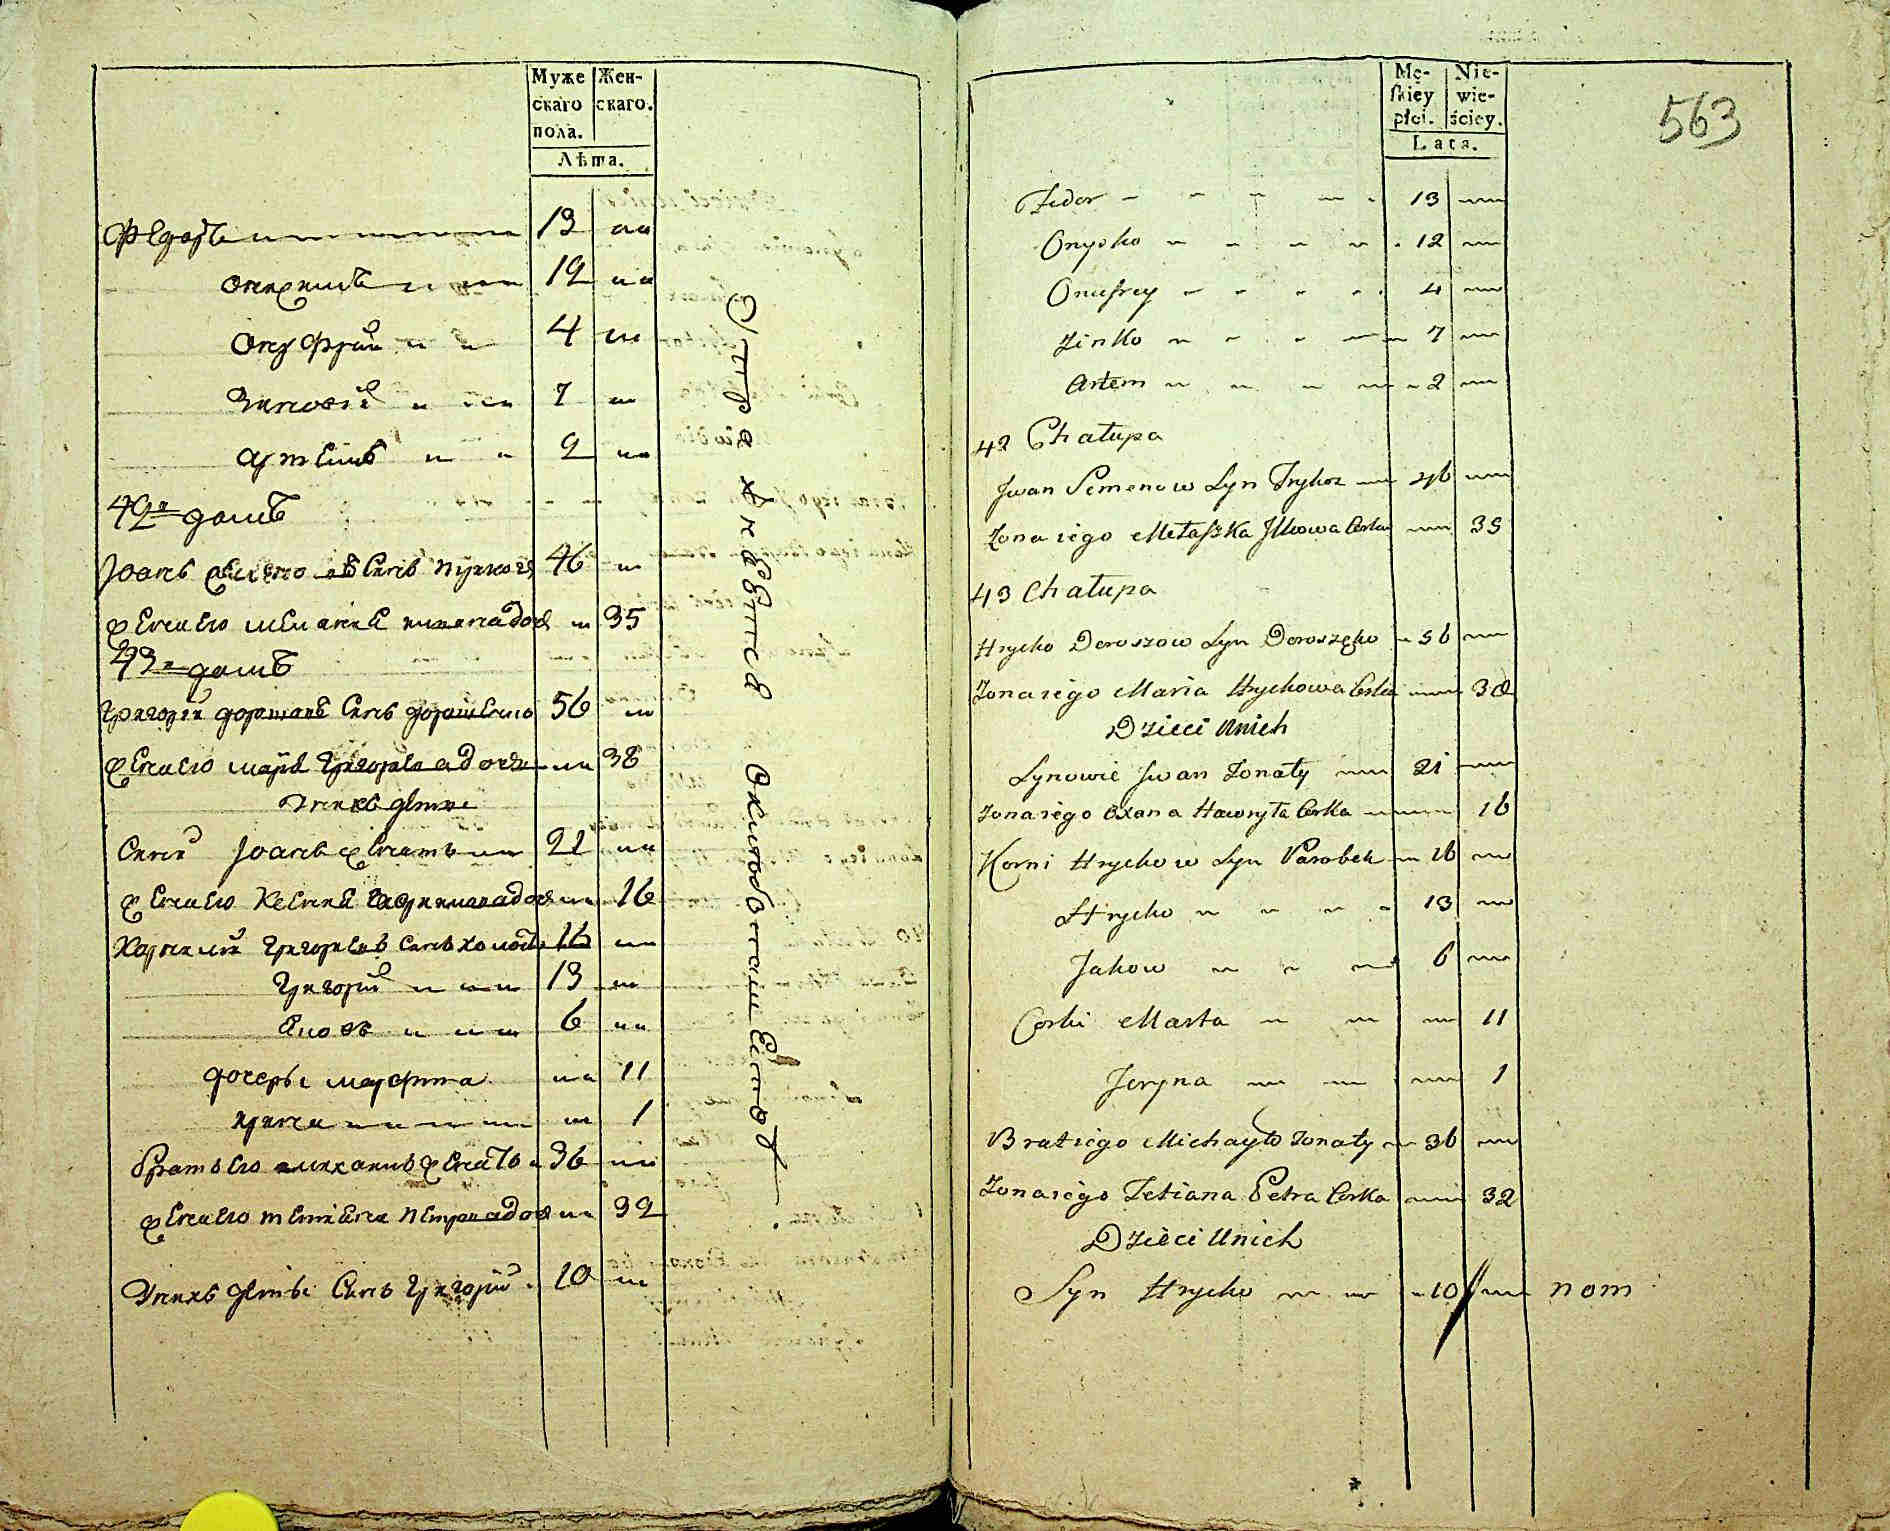 Муже
скаго
пола.
Жен-
скаго.
Лѣта.
Федоръ 13
Онисимъ 12
Онуфрій 4
Зиновій 7
Артемъ 2
42й домъ
Іоанъ Семено въ Синъ 46
жена его 35
43й домъ
Григорій Дорошовъ Синъ Дорошенко 56
жена его Марія Григорьева дочь 38
У нихъ дети
Синъ Іоанъ женатъ 21
жена его Ксенія Гаврилова доч 16
Корнилій Григорьевъ Синъ холостъ 16
Григорій 13
Яковъ 6
дочеры Марфта 11
Ирина 1
Братъ его Михаилъ женатъ 36
жена его Петрова доч 32
У нихъ дѣты Синъ Григорій 10
Mę-
skiey
płci.
Nie-
wie-
ściey.
Lata.
563
Fedor 13
Onysko 12
Onufrey 4
Zinko 7
Artem 2
42 Chałupa
Jwan Semenow Syn 46
Zona iego Cerka 35
43 Chałupa
Hrycko Doroszow Syn Doroszęko 56
Zona iego Maria Hrychowa Cerka 38
Dzieci Unich
Synowie Jwan Zonaty 21
Zona iego Oxana Hawryła Cerka 16
Korni Hryckow Syn Parobek 16
Hrycko 13
Jakow 6
Corki Marta 11
Jeryna 1
Brat iego Michayło Zonaty 36
Zona iego Tetiana Petra Cerka 32
Dzieci Unich
Syn Hrycko 10 nom